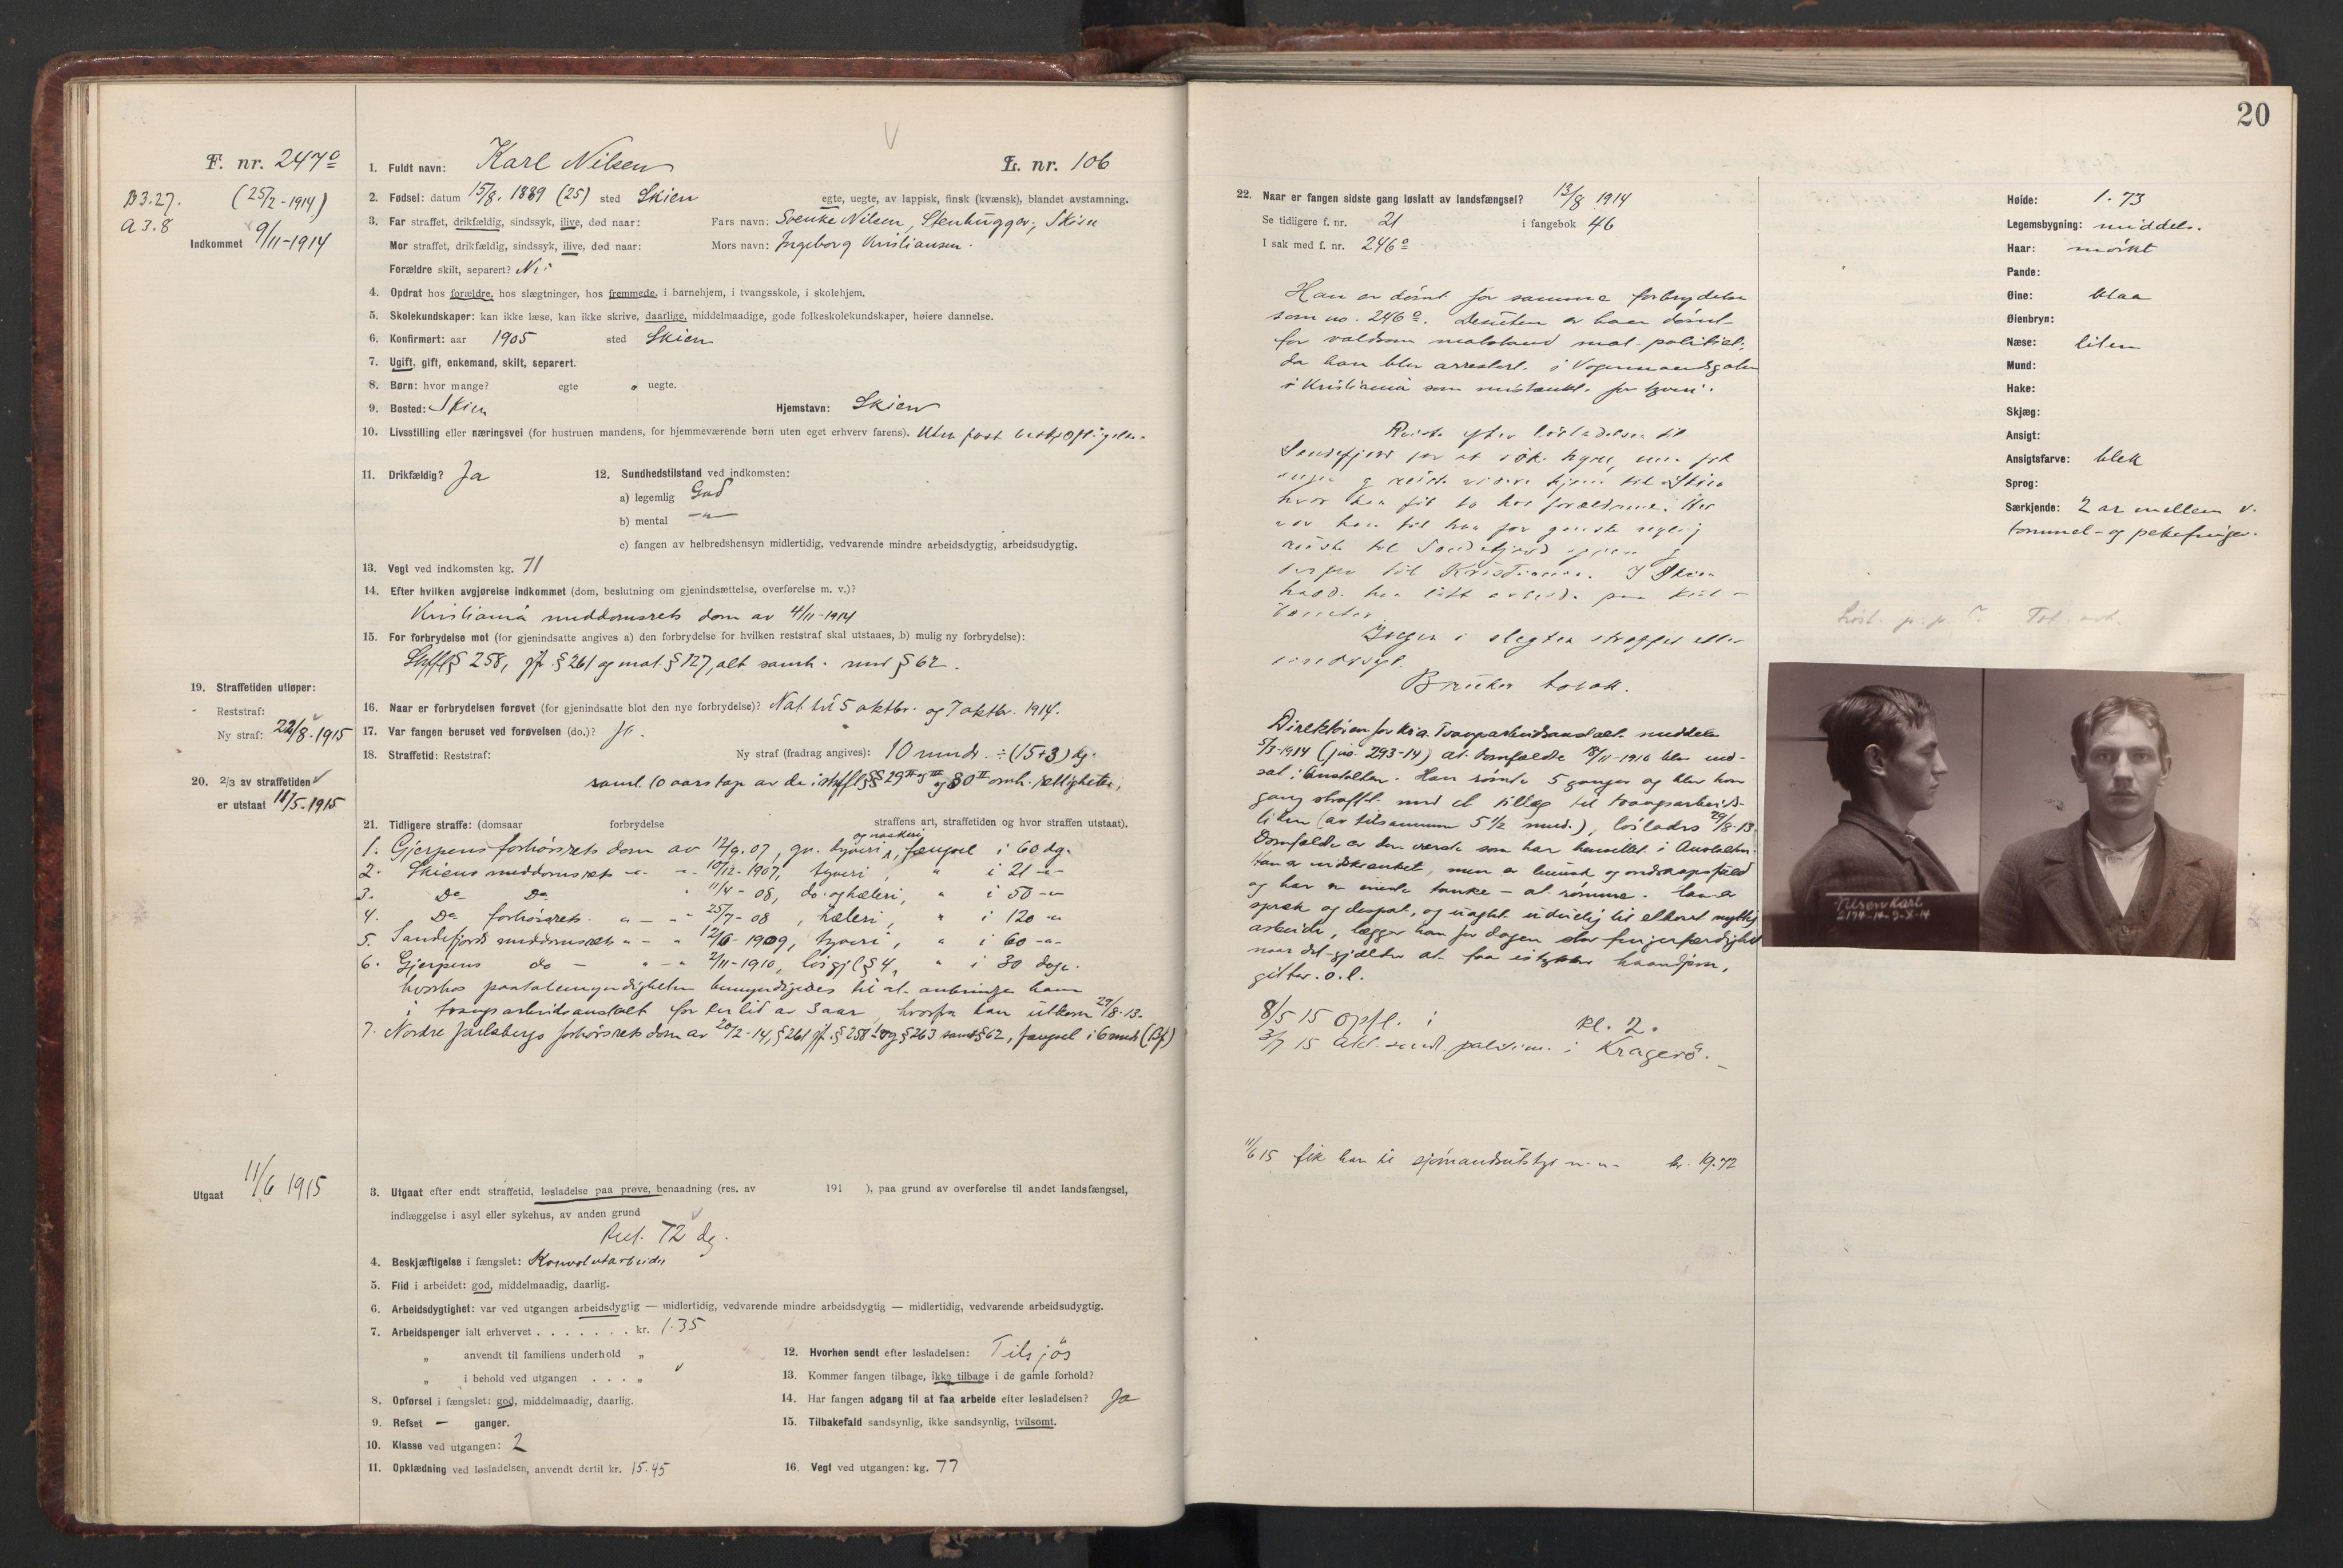 F. nr. 247º
B 3.27. (25/2 - 1914)
A 3.8
Indkommet 9/11-1914
1. Fuldt navn: Karl Nilsen L. nr. 106
2. Fødsel: datum 15/8. 1889 (25) sted Skien egte, uegte, av lappisk, finsk (kvænsk), blandet avstamning.
3. Far straffet, drikfældig, sindssyk, ilive, død naar: Fars navn: Svenke Nilsen, Stenhugger, Skien
Mor straffet, drikfældig, sindssyk, ilive, død naar: Mors navn: Ingeborg Kristiansen.
Forældre skilt, separert? Nei
4. Opdrat hos forældre, hos slægtninger, hos fremmede, i barnehjem, i tvangsskole, i skolehjem.
5. Skolekundskaper: kan ikke læse, kan ikke skrive, daarlige, middelmaadige, gode folkeskolekundskaper, høiere dannelse.
6. Konfirmert: aar 1905 sted Skien
7. Ugift, gift, enkemand, skilt, separert.
8. Børn: hvor mange? egte o uegte.
9. Bosted: Skien Hjemstavn: Skien
10. Livsstilling eller næringsvei (for hustruen mandens, for hjemmeværende børn uten eget erhverv farens). Uten fast beskjæftigelse.
11. Drikfældig? Ja 12. Sundhedstilstand ved indkomsten:
a) legemlig God
b) mental —"—
c) fangen av helbredshensyn midlertidig, vedvarende mindre arbeidsdygtig, arbeidsudygtig.
13. Vegt ved indkomsten kg. 71
14. Efter hvilken avgjørelse indkommet (dom, beslutning om gjenindsættelse, overførelse m. v.)?
Kristiania meddomsrets dom av 4/11-1914
15. For forbrydelse mot (for gjenindsatte angives a) den forbrydelse for hvilken reststraf skal utstaaes, b) mulig ny forbrydelse):
Strffl § 258, jf. § 261 og mot § 127, alt samh. med § 62.
19. Straffetiden utløper:
Reststraf:
Ny straf: 22/8-1915
16. Naar er forbrydelsen forøvet (for gjenindsatte blot den nye forbrydelse)? Nat til 5 oktbr. og 7 oktbr. 1914.
17. Var fangen beruset ved forøvelsen (do.)? Ja.
18. Straffetid: Reststraf: Ny straf (fradrag angives): 10 mndr. ÷ (15+3) dg.
20. 2/3 av straffetiden
er utstaat 11/5-1915
samt 10 aars tap av de i strffl §§ 29 II og III og 30 II omh. rettigheter.
21. Tidligere straffe: (domsaar forbrydelse straffens art, straffetiden og hvor straffen utstaat).
1. Gjerpens forhörsrets dom av 12/9.07, gr. tyveri og naskeri, fængsel i 60 dg.
2. Skiens meddomsrets " — " 10/12-1907, tyveri, " i 21 -"-
3. Do Do " 11/4-08, do. og hæleri, " i 50 -"
4. Do forhörsrets. " — " 25/7-08, hæleri, " i 120 -"
5. Sandefjords meddomsrets " — " 12/6-1909, tyveri, " i 60 -"-
6. Gjerpens do — " — " 2/11-1910, lösgjl § 4, " i 30 dage.
hvorhos paatalemyndigheten bemyndigedes til at anbringe ham
i tvangsarbeidsanstalt for en tid av 3 aar, hvorfra han utkom 29/8-13.
7. Nordre Jarlsbergs forhörsrets dom av 20/2-14, § 261 jf. § 258 og § 263 samt § 62, fængsel i 6 mndr (Bf)
Utgaat 11/6 1915
3. Utgaat efter endt straffetid, løsladelse paa prøve, benaadning (res. av 191 ), paa grund av overførelse til andet landsfængsel,
indlæggelse i asyl eller sykehus, av anden grund
Rest. 72 dg.
4. Beskjæftigelse i fængslet: Konvolutarbeide
5. Flid i arbeidet: god, middelmaadig, daarlig.
6. Arbeidsdygtighet: var ved utgangen arbeidsdygtig — midlertidig, vedvarende mindre arbeidsdygtig — midlertidig, vedvarende arbeidsudygtig.
7. Arbeidspenger ialt erhvervet . . . . . . . kr. 1.35
„ anvendt til familiens underhold „
„ i behold ved utgangen . . . . „
8. Opførsel i fængslet: god, middelmaadig, daarlig.
9. Refset — ganger.
10. Klasse ved utgangen: 2
11. Opklædning ved løsladelsen, anvendt dertil kr. 15.45
12. Hvorhen sendt efter løsladelsen: Tilsjös
13. Kommer fangen tilbage, ikke tilbage i de gamle forhold?
14. Har fangen adgang til at faa arbeide efter løsladelsen? Ja
15. Tilbakefald sandsynlig, ikke sandsynlig, tvilsomt.
16. Vegt ved utgangen: kg. 77
20
22. Naar er fangen sidste gang løslatt av landsfængsel? 13/8 1914
Se tidligere f. nr. 21 i fangebok 46
I sak med f. nr. 246º
Han er dömt for samme forbrydelse
som no. 246º. Desuten er han dömt
for voldsom motstand mot politiet,
da han blev arrestert i Vognmandsgaten
i Kristiania som mistænkt for tyveri.
Reiste efter lösladelsen til
Sandefjord for at sök. hyre, men fik
ingen og reiste videre hjem til Skien
hvor han fik bo hos forældrene. Her
var han til han for
reiste til Sandefjord igjen og
derfra til Kristiania. I Skien
havde han litt arbeide paa
Ingen i slegten straffet eller
sindssyk.
Bruker tobak.
Direktören for Kra. Tvangsarbeidsanstalt meddeler
5/3-1914 (jno. 293-14) at domfældte 18/11-1910 blev ind-
sat i Anstalten. Han römte 5 ganger og blev hver
gang straffet med et tillæg til tvangsarbeids-
tiden (av tilsammen 5 1/2 mnd.), löslodes 29/8-13.
Domfældte er den værste som har hensittet i Anstalten.
Han er indskrænket, men er lumsk og ondskapsfuld
og har en eneste tanke — at römme. Han er
spræk og despat, og uagtet uduelig til ethvert nyttig
arbeide, lægger han for dagen stor fingerfærdighet
naar det gjælder at faa istykker haandjern,
gitter o.l.
8/5 15 opfl. i kl. 2.
3/7 15 politim. i Kragerö.
11/6 15 fik han til sjömandsutstyr m.m. kr. 19.72
Høide: 1.73
Legemsbygning: middels.
Haar: mörkt
Pande:
Øine: blaa
Øienbryn:
Næse: liten
Mund:
Hake:
Skjæg:
Ansigt:
Ansigtsfarve: blek
Sprog:
Særkjende: 2 ar mellem v.
tommel- og pekefinger.
Nilsen Karl
2174-14-9-X-14